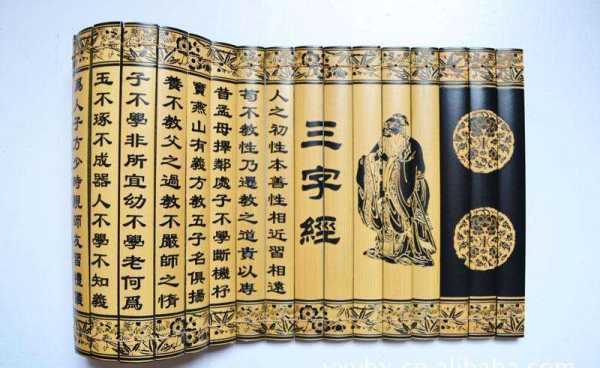 三字經
人之初性本善性相近習相遠
苟不教性乃遷教之道貴以專
昔孟母擇鄰處子不學斷機杼
竇燕山有義方教五子名俱揚
養不教父之過教不嚴師之惰
子不學非所宜幼不學老何爲
玉不琢不成器人不學不知義
爲人子方少時親師友習禮儀
cn.alibaba.com